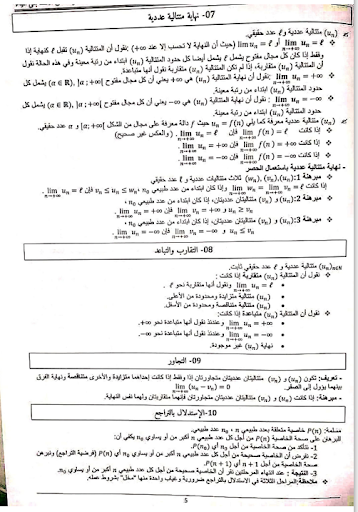 07- نهاية متتالية عددية
(uₙ) متتالية عددية و ℓ عدد حقيقي.
lim uₙ = ℓ أو lim uₙ = ℓ (حيث أن النهاية لا تحسب إلا عند ∞+) نقول أن المتتالية (uₙ) تقبل ℓ كنهاية إذا
وفقط إذا كان كل مجال مفتوح يشمل ℓ يشمل أيضا كل حدود المتتالية (uₙ) ابتداء من رتبة معينة. وفي هذه الحالة نقول
أن المتتالية (uₙ) متقاربة، إذا لم تكن المتتالية (uₙ) متقاربة نقول أنها متباعدة.
lim uₙ = +∞ : نقول أن نهاية المتتالية (uₙ) هي ∞+ يعني أن كل مجال مفتوح ]a ; +∞[، (a ∈ ℝ) يشمل كل
حدود المتتالية (uₙ) ابتداء من رتبة معينة.
lim uₙ = −∞ : نقول أن نهاية المتتالية (uₙ) هي ∞− يعني أن كل مجال مفتوح (a ∈ ℝ) يشمل كل
حدود المتتالية (uₙ) ابتداء من رتبة معينة.
(uₙ) متتالية عددية معرفة كما يلي uₙ = f(n) حيث f دالة معرفة على مجال من الشكل [a ; +∞[ و a عدد حقيقي.
إذا كانت lim f(n) = ℓ فإن lim uₙ = ℓ. (والعكس غير صحيح)
إذا كانت lim f(n) = +∞ فإن lim uₙ = +∞.
إذا كانت lim f(n) = −∞ فإن lim uₙ = −∞.
- نهاية متتالية عددية باستعمال الحصر
مبرهنة 1: (uₙ)، (vₙ)، (wₙ) ثلاث متتاليات عددية و ℓ عدد حقيقي
إذا كانت lim vₙ = lim wₙ = ℓ وإذا كان ابتداء من عدد طبيعي n₀، vₙ ≤ uₙ ≤ wₙ فإن lim uₙ = ℓ.
مبرهنة 2: (uₙ) و (vₙ) متتاليتان عدديتان، إذا كان ابتداء من عدد طبيعي n₀،
uₙ ≥ vₙ و lim vₙ = +∞ فإن lim uₙ = +∞.
مبرهنة 3: (uₙ) و (vₙ) متتاليتان عدديتان، إذا كان ابتداء من عدد طبيعي n₀،
uₙ ≤ vₙ و lim vₙ = −∞ فإن lim uₙ = −∞.
08- التقارب والتباعد
(uₙ)ₙ∈ℕ متتالية عددية و ℓ عدد حقيقي ثابت.
نقول أن المتتالية (uₙ) متقاربة إذا كانت:
lim uₙ = ℓ ونقول أنها متقاربة نحو ℓ.
(uₙ) متتالية متزايدة ومحدودة من الأعلى.
(uₙ) متتالية متناقصة ومحدودة من الأسفل.
نقول أن المتتالية (uₙ) متباعدة إذا كانت:
lim uₙ = +∞ وعندئذ نقول أنها متباعدة نحو ∞+.
lim uₙ = −∞ وعندئذ نقول أنها متباعدة نحو ∞−.
نهاية (uₙ) غير موجودة.
09- التجاور
- تعريف: تكون (uₙ) و (vₙ) متتاليتان عدديتان متجاورتان إذا وفقط إذا كانت إحداهما متزايدة والأخرى متناقصة ونهاية الفرق
بينهما يؤول إلى الصفر. lim (uₙ − vₙ) = 0
- مبرهنة: إذا كانت (uₙ) و (vₙ) متتاليتان عدديتان متجاورتان فإنهما متقاربتان ولهما نفس النهاية.
10- الإستدلال بالتراجع
مسلمة: P(n) خاصية متعلقة بعدد طبيعي n، n₀ عدد طبيعي.
للبرهان على صحة الخاصية P(n) من أجل كل عدد طبيعي n أكبر من أو يساوي n₀ يكفي أن:
1- نتأكد من صحة الخاصية من أجل n₀ أي P(n₀).
2- نفرض أن الخاصية صحيحة من أجل كل عدد طبيعي n أكبر من أو يساوي n₀ أي P(n) (فرضية التراجع) ونبرهن
صحة الخاصية من أجل n + 1 أي P(n + 1).
3- النتيجة: عند انتهاء المرحلتين نقر أن الخاصية صحيحة من أجل كل عدد طبيعي n أكبر من أو يساوي n₀.
ملاحظة: المراحل الثلاثة في الاستدلال بالتراجع ضرورية وغياب واحدة منها "مخل" بشروط عمله.
5